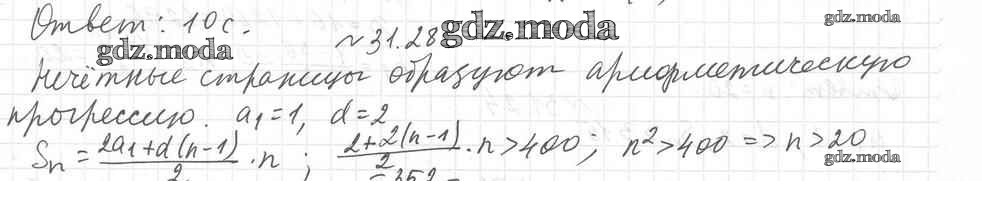 Ответ: 10 с.
gdz.moda
gdz.moda
gdz.moda
№31.28
Нечётные страницы образуют арифметическую
прогрессию. a₁=1, d=2
Sn = (2a₁+d(n-1))/2 · n ; (2+2(n-1))/2 · n>400; n²>400 => n>20
gdz.moda